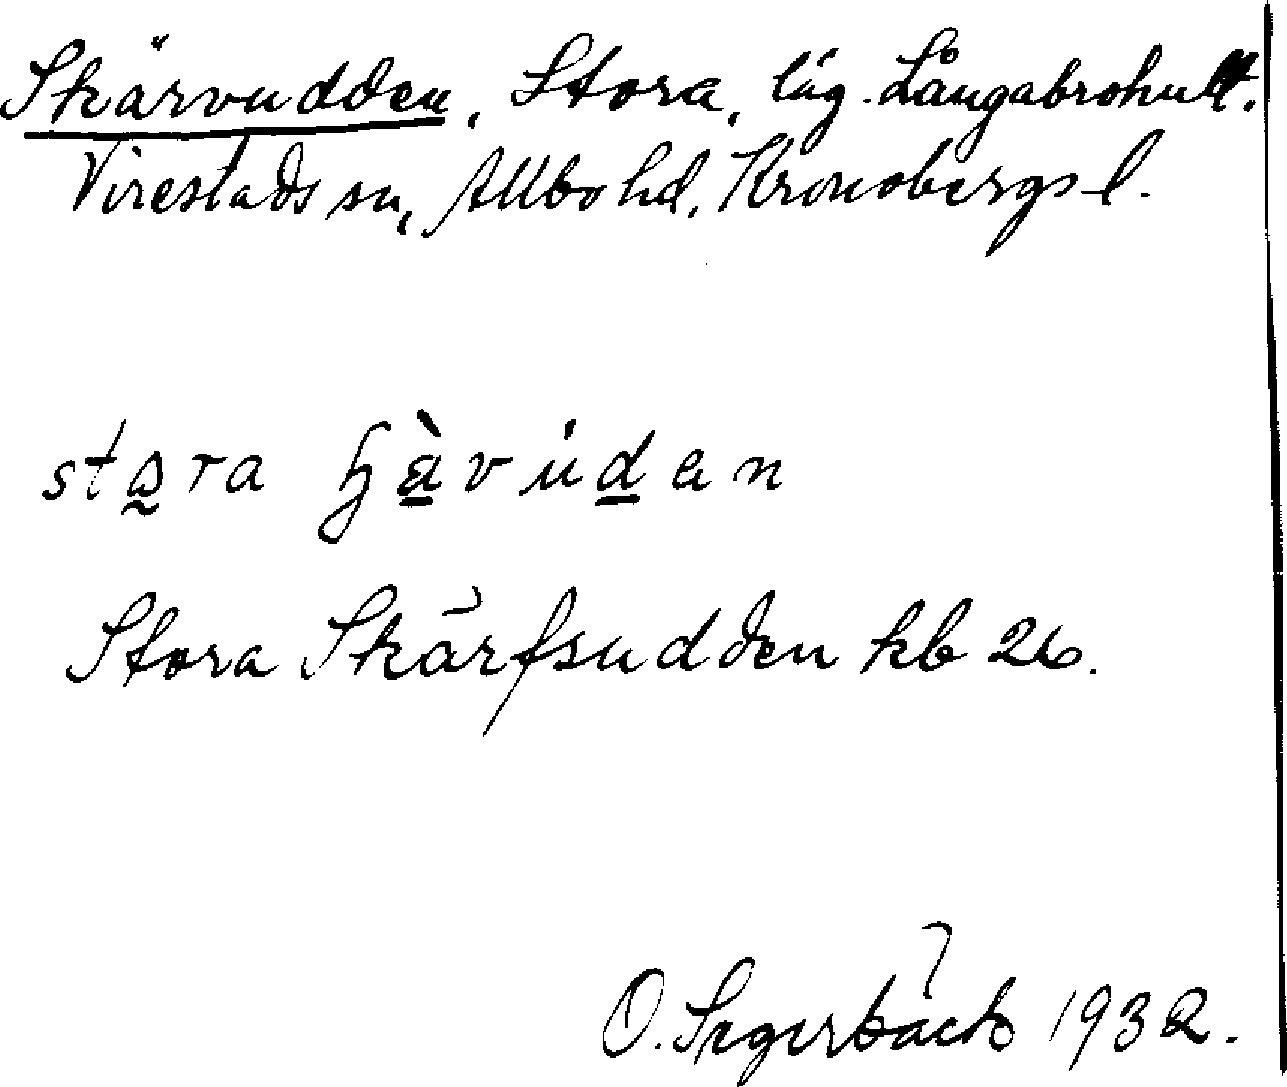 Skärvudden, Stora, läg. Långabrohult.
Virestads sn, Allbo hd, Kronobergs l.
stora ɧàvúdan
Stora Skärfsudden kb 26.
O. Segerbäck 1932.